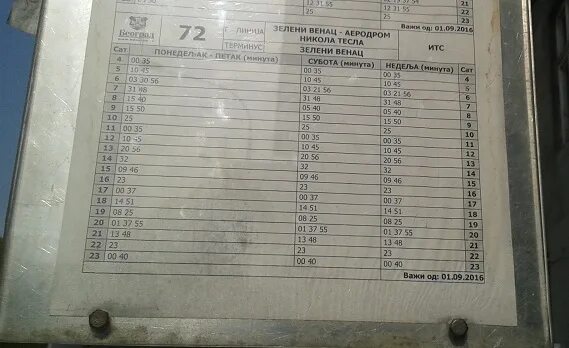 12 31 55 12 31 55 21
25 25
Важи од: 01.09.2016
Београд 72 ЗЕЛЕНИ ВЕНАЦ - АЕРОДРОМ НИКОЛА ТЕСЛА ИТС
ТЕРМИНУС ЗЕЛЕНИ ВЕНАЦ
Сат ПОНЕДЕЉАК - ПЕТАК (минута) СУБОТА (минута) НЕДЕЉА (минута) Сат
4 00 35 00 35 00 35 4
5 10 45 10 45 10 45 5
6 03 30 56 03 21 56 03 21 56 6
7 31 48 31 48 31 48 7
8 15 40 15 50 15 50 8
9 15 50 25 25 9
10 25 00 35 00 35 10
11 00 35 10 45 10 45 11
12 10 45 20 56 20 56 12
13 20 56 32 32 13
14 32 09 46 09 46 14
15 09 46 23 23 15
16 23 00 37 00 37 16
17 00 37 14 51 14 51 17
18 14 51 08 25 08 25 18
19 08 25 01 37 55 01 37 55 19
20 01 37 55 13 48 13 48 20
21 13 48 23 23 21
22 23 00 40 00 40 22
23 00 40 23
Важи од: 01.09.2016